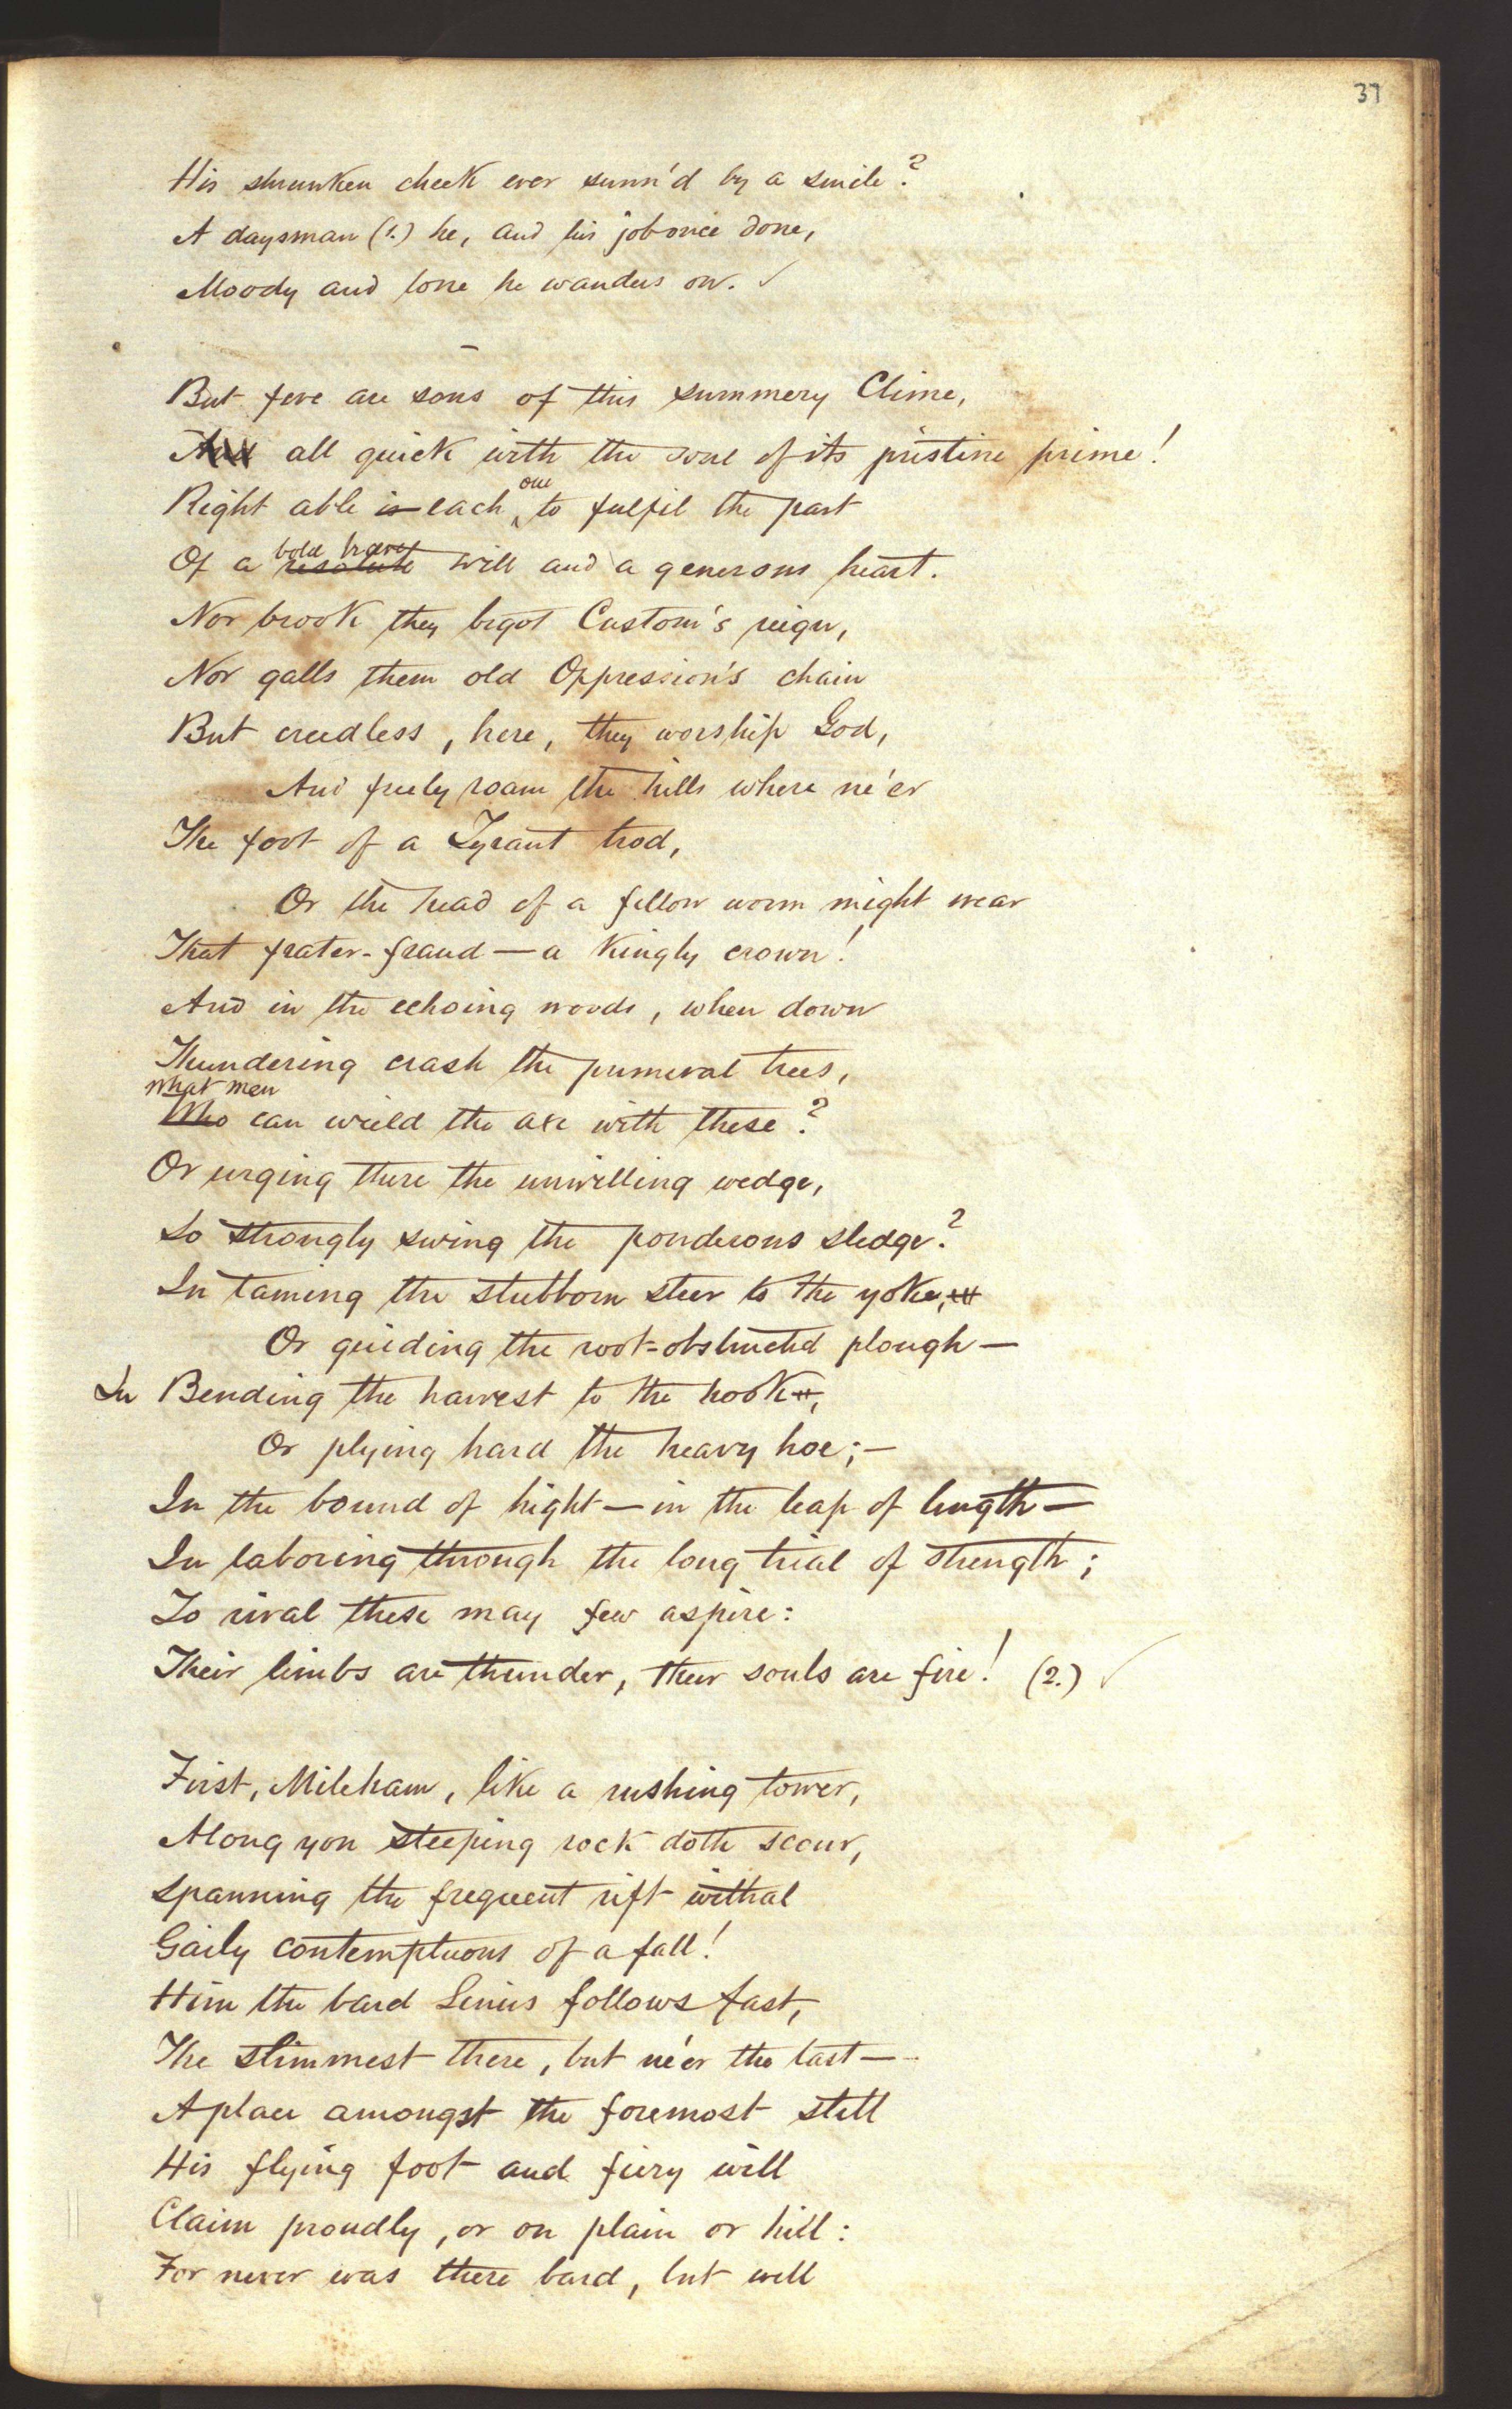 37
His shrunken cheek ever sunn'd by a smile?
A daysman (1.) he, and his job once done,
Moody and lone he wanders on. ✓
But five are sons of this summery Clime,
And all quick with the soul of its pristine prime!
Right able is each one to fulfil the part
Of a resolute bold brave will and a generous heart.
Nor brook they bigot Custom's reign,
Nor galls them old Oppression's chain
But creedless, here, they worship God,
And freely roam the hills where ne'er
The foot of a Tyrant trod,
Or the head of a fellow worm might wear
That frater-fraud—a kingly crown!
And in the echoing woods, when down
Thundering crash the primeval trees,
what men
Who can wield the axe with these?
Or urging there the unwilling wedge,
So strongly swing the ponderous sledge?
In taming the stubborn steer to the yoke,
Or guiding the root-obstructed plough—
In Bending the harvest to the hook,
Or plying hard the heavy hoe;—
In the bound of hight—in the leap of length—
In laboring through the long trial of strength;
To rival these may few aspire:
Their limbs are thunder, their souls are fire! (2.) ✓
First, Mileham, like a rushing tower,
Along yon steeping rock doth scour,
Spanning the frequent rift withal
Gaily contemptuous of a fall!
Him the bard Linius follows fast,
The slimmest there, but ne'er the last—
A place amongst the foremost still
His flying foot and fiery will
Claim proudly, or on plain or hill:
For never was there bard, but well